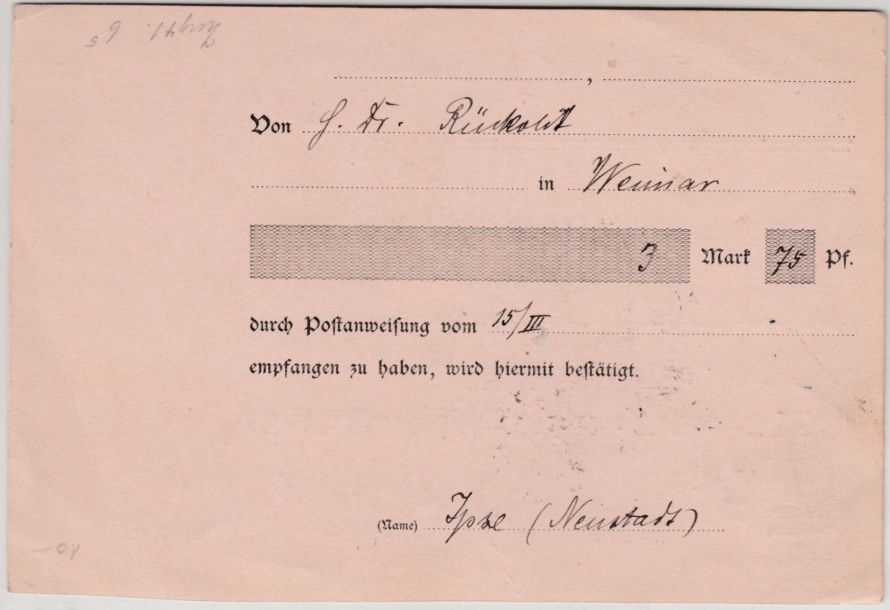 Von H. Dr. Rückoldt
in Weimar
3 Mark 75 Pf.
durch Poſtanweiſung vom 15/III
empfangen zu haben, wird hiermit beſtätigt.
(Name) (Neustadt)